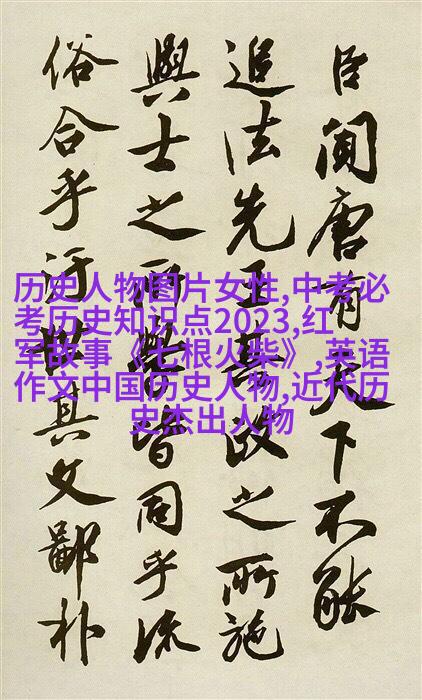 臣聞唐有天下不能
追法先王善政之所施
與士之所學皆同乎流
俗合乎汙世其文鄙朴
历史人物图片女性,中考必
考历史知识点2023,红
军故事《七根火柴》,英语
作文中国历史人物,近代历
史杰出人物